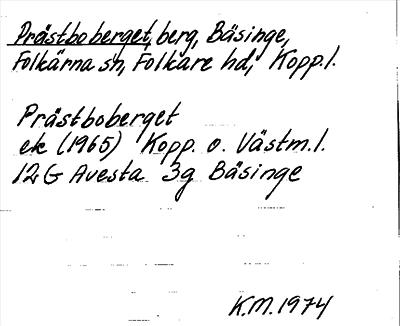 Prästboberget, berg, Bäsinge,
Folkärna sn, Folkare hd, Kopp.l.
Prästboberget
ek (1965) Kopp. o. Västm.l.
12G Avesta 3g Bäsinge
K.M. 1974